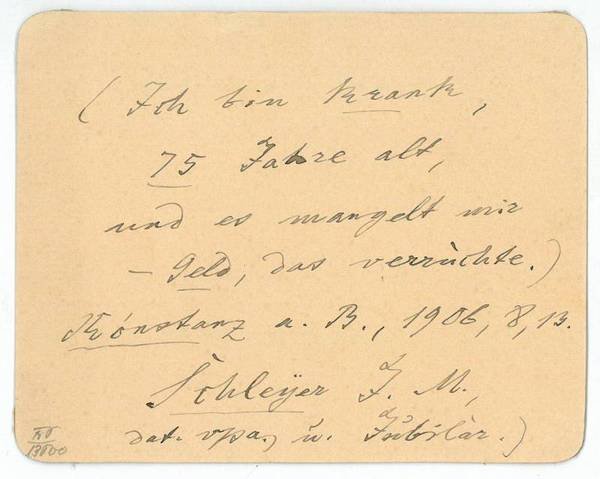 (Ich bin krank,
75 Jahre alt,
und es mangelt mir
– Geld, das verrùchte.)
Kónstanz a. B., 1906, 8, 13.
Schleÿer J. M.,
dat. vpa, u. Jubilar.)